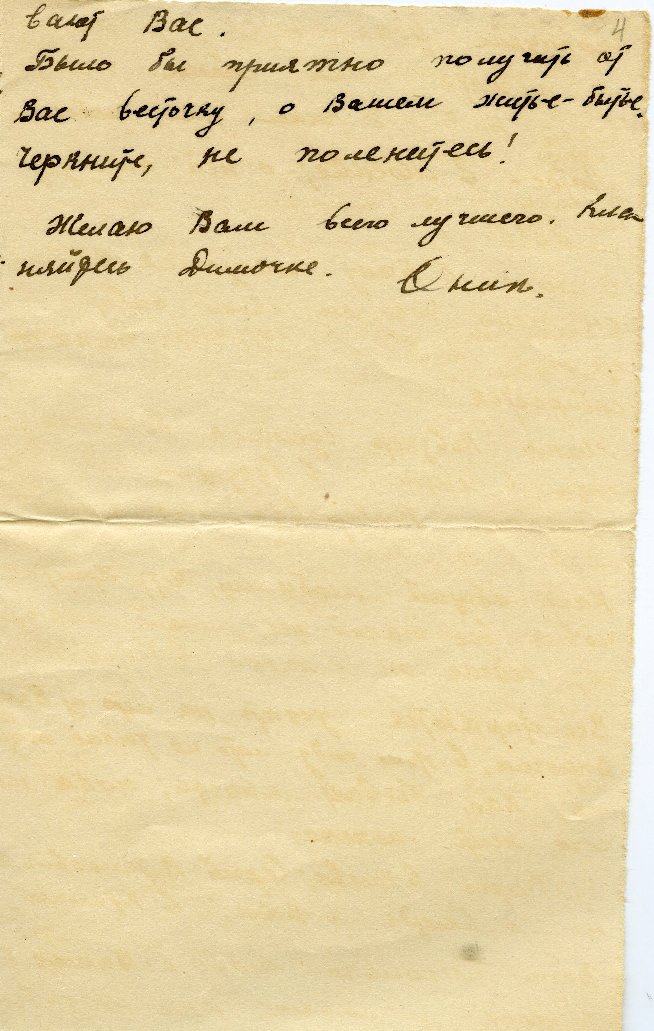 4
вают Вас.
Было бы приятно получить от
Вас весточку, о Вашем житье-бытье.
Черкните, не поленитесь!
Желаю Вам всего лучшего. Кла-
няйтесь Димочке.